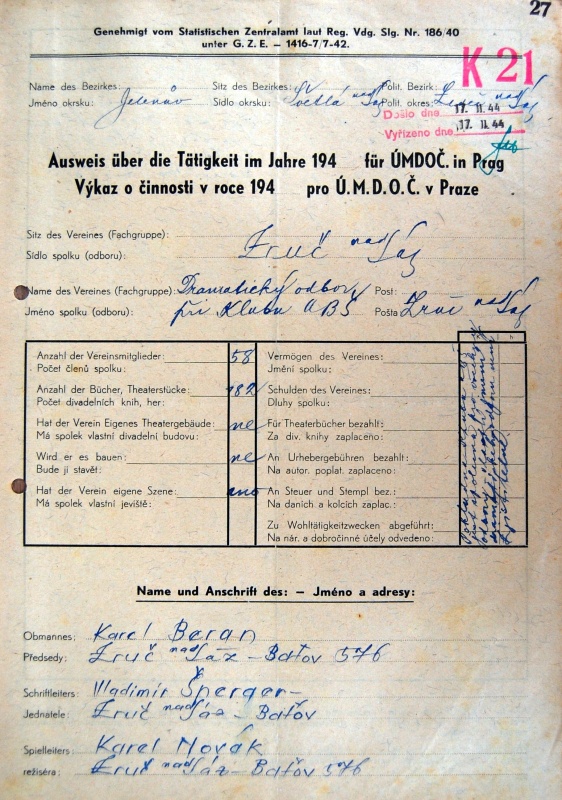 27
Genehmigt vom Statistischen Zentralamt laut Reg. Vdg. Slg. Nr. 186/40
unter G. Z. E. — 1416-7/7-42.
K 21
Name des Bezirkes: Sitz des Bezirkes: Polit. Bezirk:
Jméno okrsku: Jelenův Sídlo okrsku: Světlá nad Sáz Polit. okres:
Došlo dne 17. 11. 44
Vyřízeno dne 17. 11. 44
Ausweis über die Tätigkeit im Jahre 194 für ÚMDOČ. in Prag
Výkaz o činnosti v roce 194 pro Ú.M.D.O.Č. v Praze
Sitz des Vereines (Fachgruppe):
Sídlo spolku (odboru): Zruč nad Sáz
Name des Vereines (Fachgruppe): Dramatický odbor Post:
Jméno spolku (odboru): při Klubu ABS Pošta Zruč nad Sáz
Anzahl der Vereinsmitglieder: 58 Vermögen des Vereines:
Počet členů spolku: Jmění spolku:
Anzahl der Bücher, Theaterstücke: 182 Schulden des Vereines:
Počet divadelních knih, her: Dluhy spolku:
Hat der Verein Eigenes Theatergebäude: ne Für Theaterbücher bezahlt:
Má spolek vlastní divadelní budovu: Za div. knihy zaplaceno:
Wird er es bauen: ne An Urhebergebühren bezahlt:
Bude ji stavět: Na autor. poplat. zaplaceno:
Hat der Verein eigene Szene: ano An Steuer und Stempl bez.:
Má spolek vlastní jeviště: Na daních a kolcích zaplac.:
Zu Wohltätigkeitzwecken abgeführt:
Na nár. a dobročinné účely odvedeno:
Name und Anschrift des: — Jméno a adresy:
Obmannes: Karel Beran
Předsedy: Zruč nad Sáz – Baťov 576
Schriftleiters: Vladimír Šperger –
Jednatele: Zruč nad Sáz – Baťov
Spielleiters: Karel Novák
režiséra: Zruč nad Sáz – Baťov 576